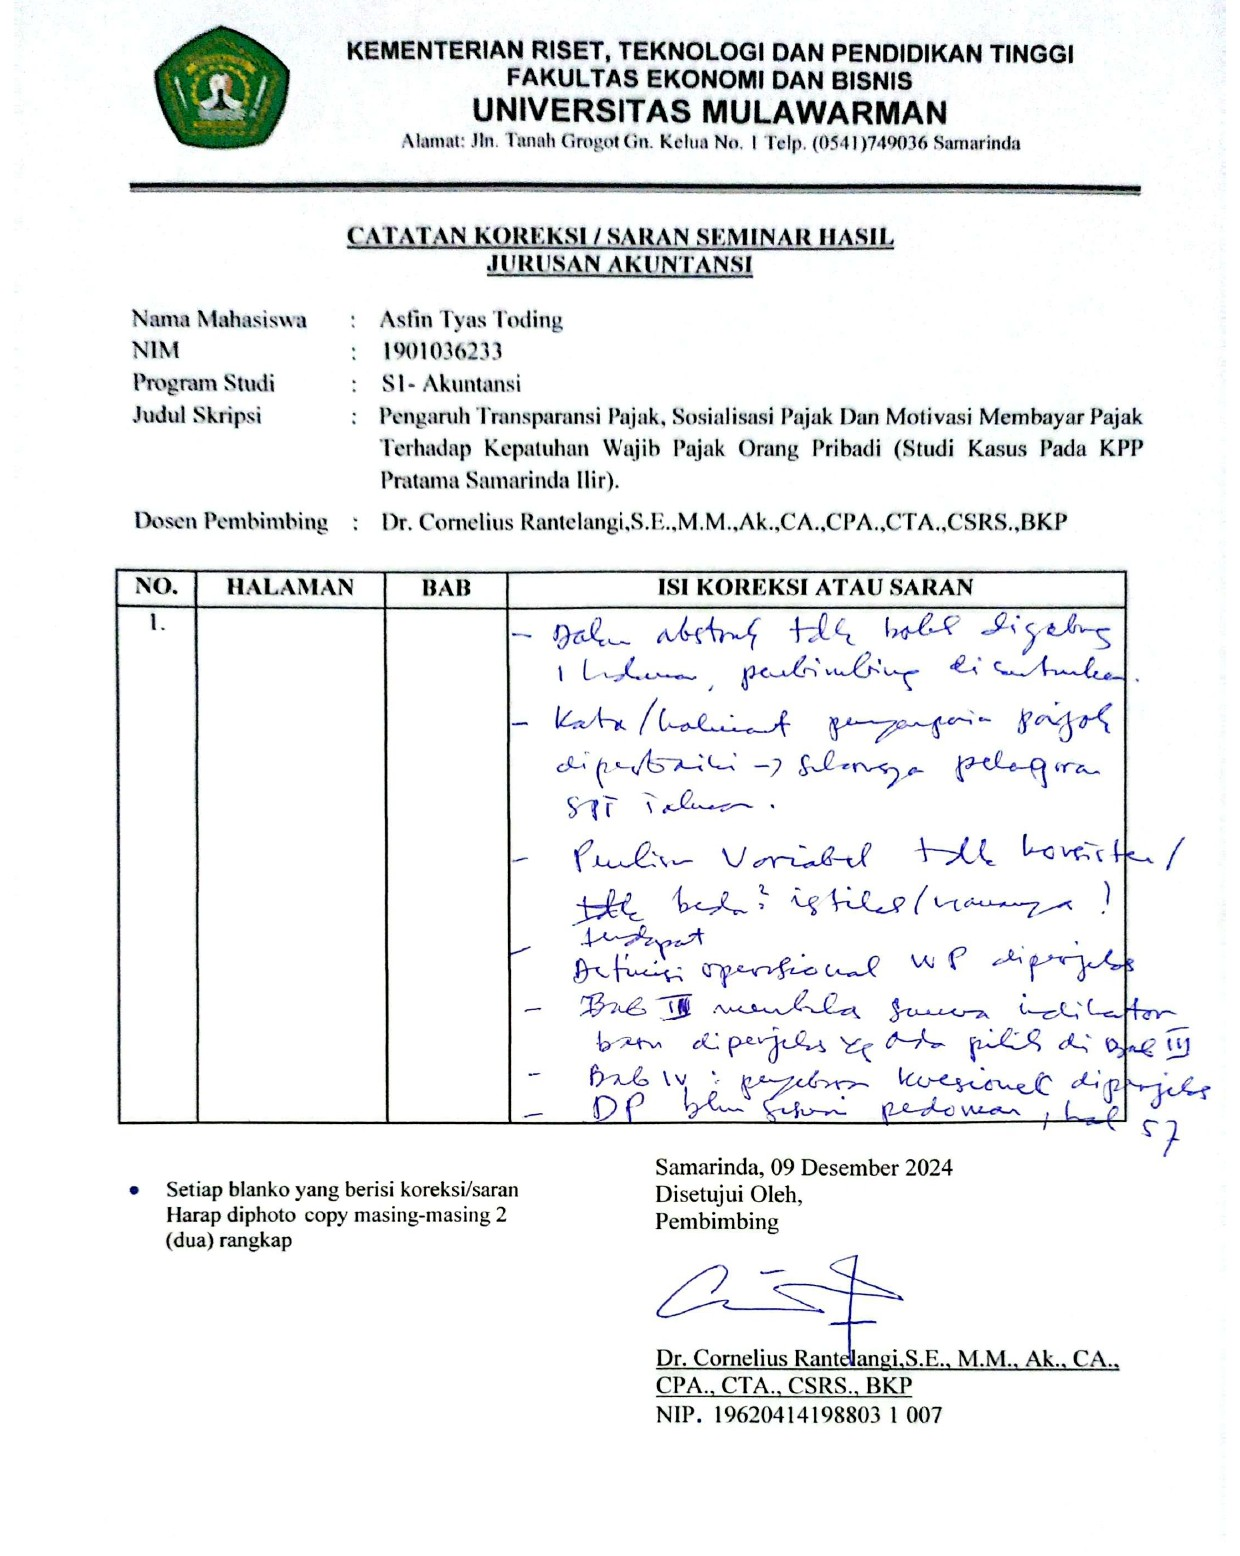 KEMENTERIAN RISET, TEKNOLOGI DAN PENDIDIKAN TINGGI
FAKULTAS EKONOMI DAN BISNIS
UNIVERSITAS MULAWARMAN
Alamat: Jln. Tanah Grogot Gn. Kelua No. 1 Telp. (0541)749036 Samarinda
CATATAN KOREKSI / SARAN SEMINAR HASIL
JURUSAN AKUNTANSI
Nama Mahasiswa : Asfin Tyas Toding
NIM : 1901036233
Program Studi : S1- Akuntansi
Judul Skripsi : Pengaruh Transparansi Pajak, Sosialisasi Pajak Dan Motivasi Membayar Pajak
Terhadap Kepatuhan Wajib Pajak Orang Pribadi (Studi Kasus Pada KPP
Pratama Samarinda Ilir).
Dosen Pembimbing : Dr. Cornelius Rantelangi,S.E.,M.M.,Ak.,CA.,CPA.,CTA.,CSRS.,BKP
NO. HALAMAN BAB ISI KOREKSI ATAU SARAN
1.
- Dalam abstrak tdk boleh digabung
1 halaman, pembimbing dicantumkan.
- Kata/kalimat penyampaian pajak
diperbaiki -> seharusnya pelaporan
SPT Tahunan.
- Penulisan Variabel tdk konsisten/
beda² istilah/namanya !
terdapat
- Definisi operasional WP diperjelas
- Bab III semua indikator
baru diperjelas yg ada pilih di Bab III
- Bab IV : penyebaran kuesioner diperjelas
- DP blm sesuai pedoman, hal 57
Samarinda, 09 Desember 2024
Disetujui Oleh,
Pembimbing
• Setiap blanko yang berisi koreksi/saran
Harap diphoto copy masing-masing 2
(dua) rangkap
Dr. Cornelius Rantelangi,S.E., M.M., Ak., CA.,
CPA., CTA., CSRS., BKP
NIP. 19620414198803 1 007